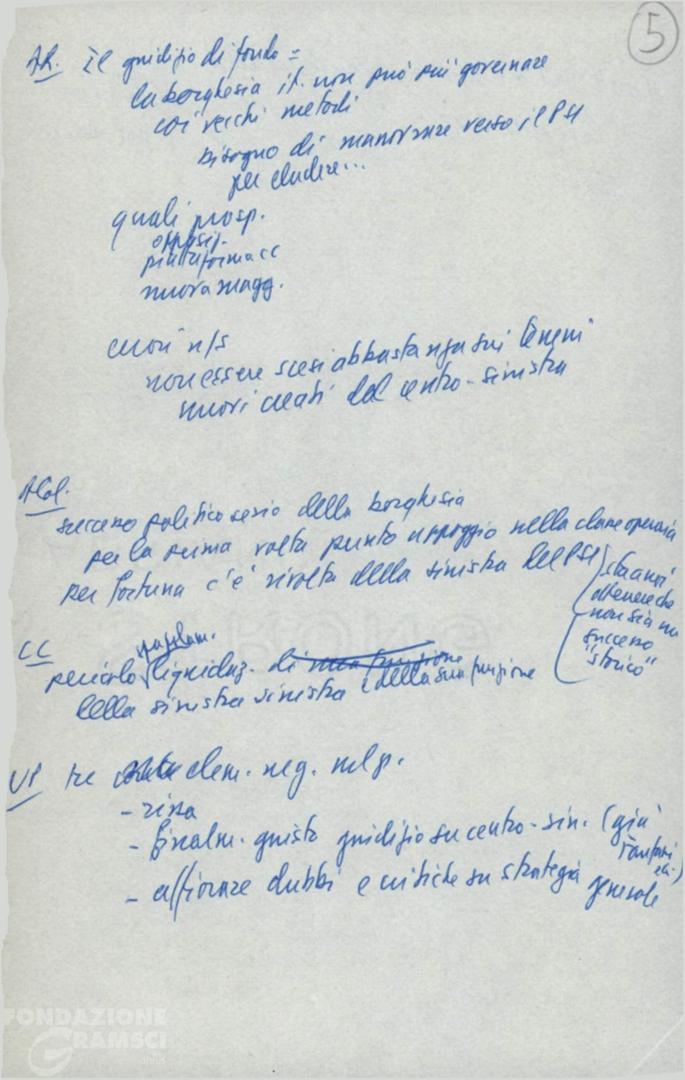 5
AR. Il giudizio di fondo =
la borghesia it. non può più governare
coi vecchi metodi
bisogno di manovrare verso il PSI
per eludere...
quali prosp.
opposiz.
piattaforma CC
nuova magg.
errori n/s
non essere scesi abbastanza sui terreni
nuovi creati dal centro-sinistra
successo politico serio della borghesia
per la prima volta punto appoggio nella classe operaia
per fortuna c'è rivolta della sinistra del PSI
sta a noi
ottenere che
non sia un
successo
"storico"
CC
pericolo liquidaz. di una funzione
della sinistra sinistra e della sua funzione
VP tre elem. neg. nel p.
- rissa
- finalm. giusto giudizio su centro-sin. (già
Fanfani
ecc.)
- affiorare dubbi e critiche su strategia generale
FONDAZIONE
GRAMSCI